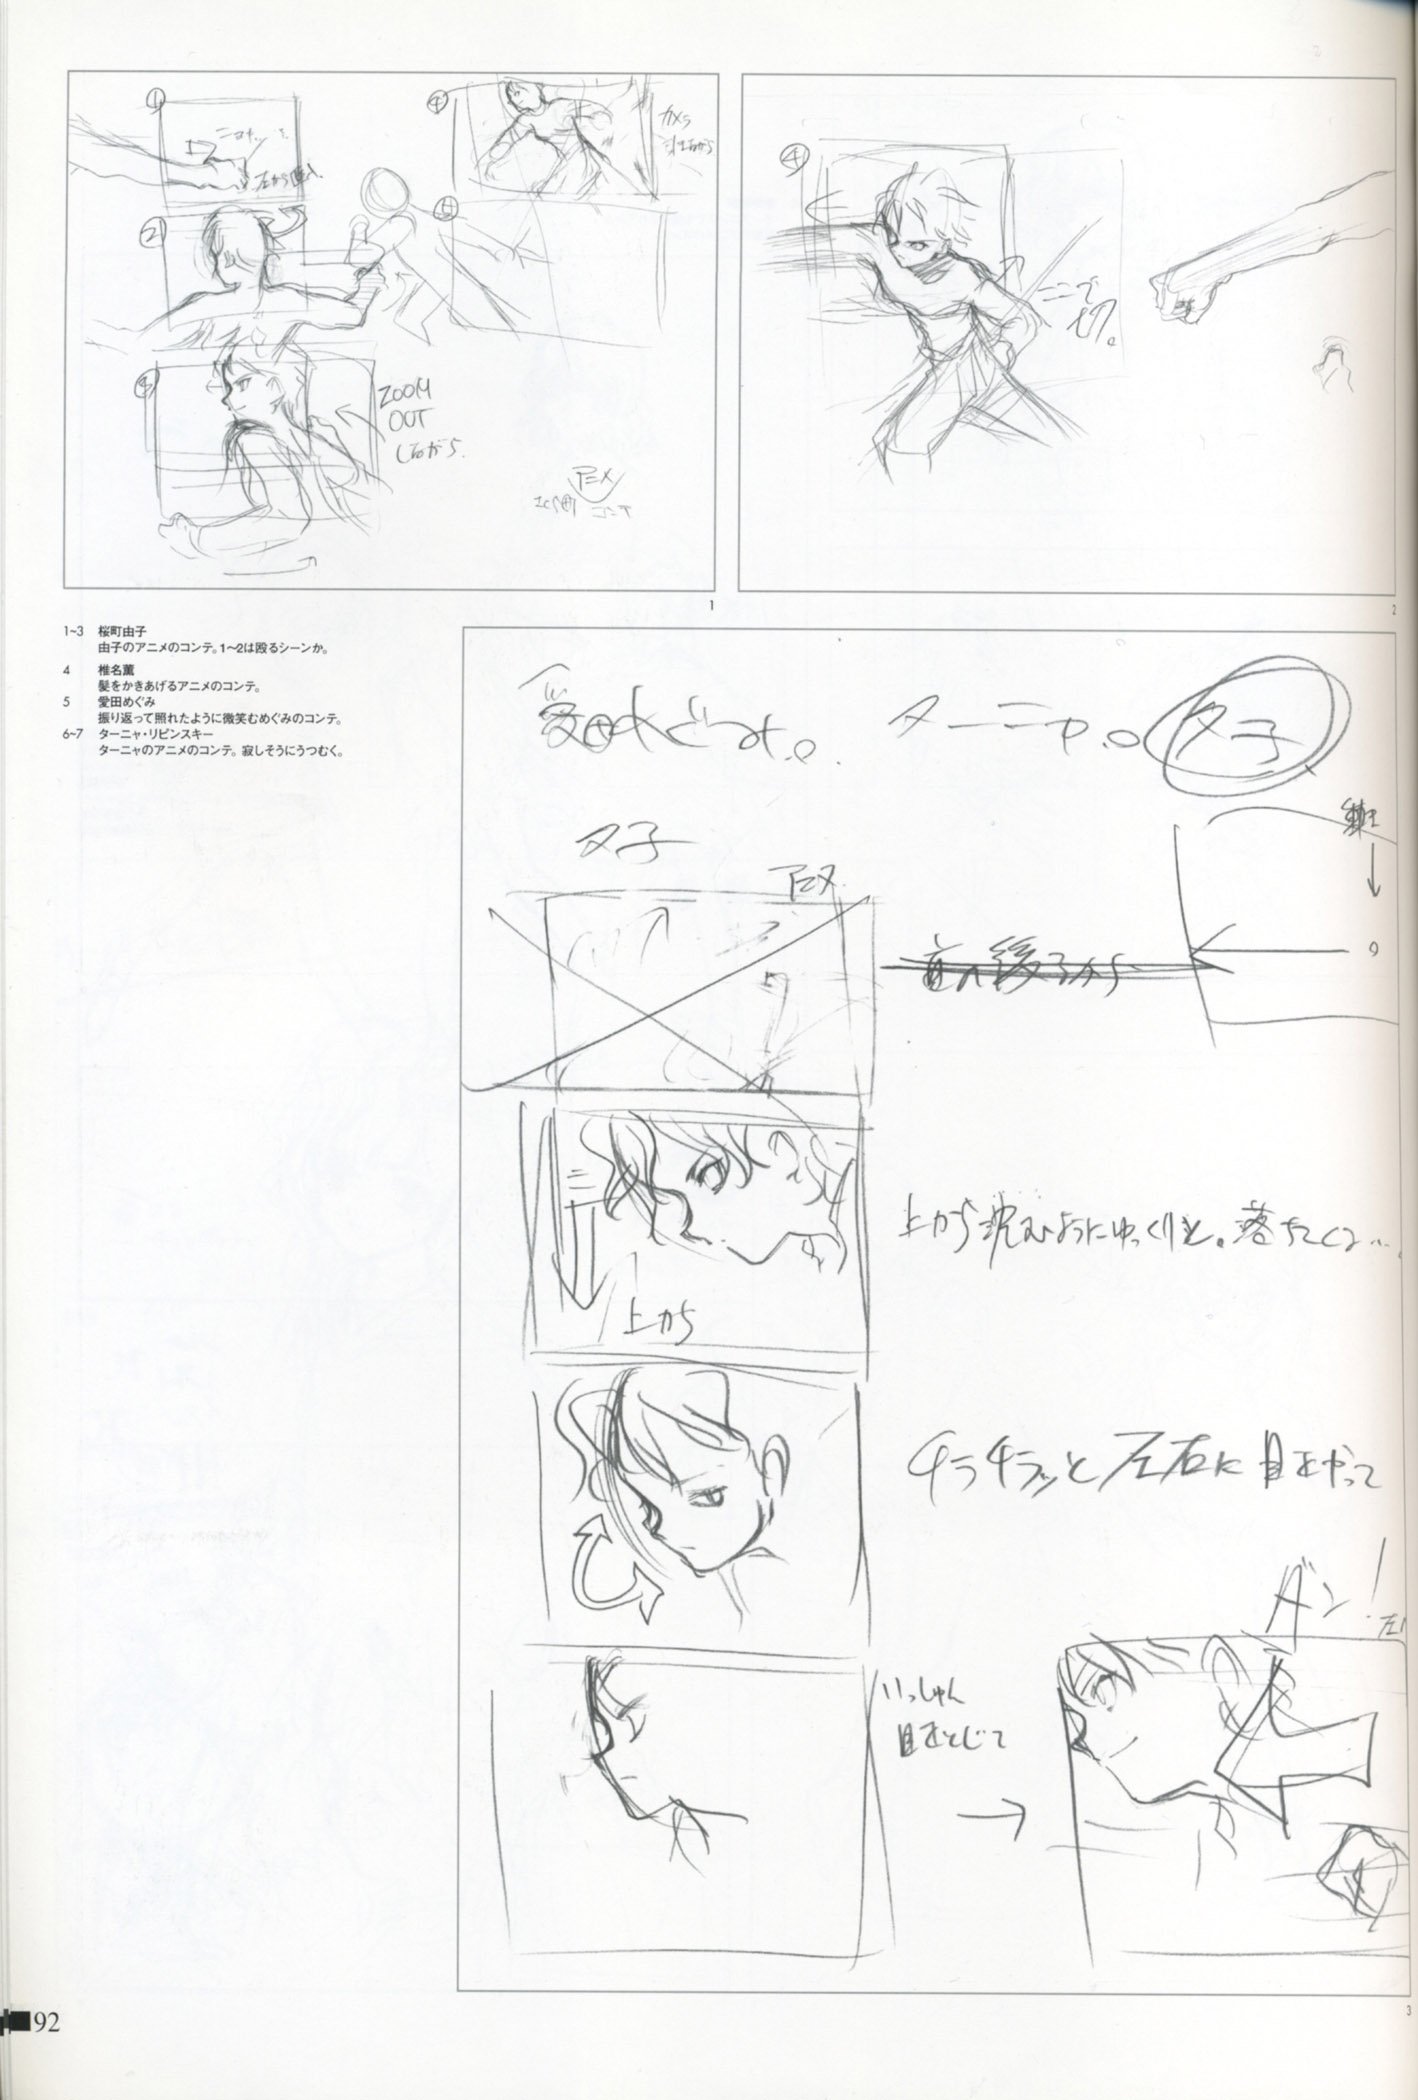 ①
②
③
ZOOM
OUT
しながら
④
カメラ
アニメ
コンテ
1
④
ここで
2
1~3 桜町由子
由子のアニメのコンテ。1~2は殴るシーンか。
4 椎名薫
髪をかきあげるアニメのコンテ。
5 愛田めぐみ
振り返って照れたように微笑むめぐみのコンテ。
6~7 ターニャ・リピンスキー
ターニャのアニメのコンテ。寂しそうにうつむく。
ターニャ。
夕子
夕子
アニメ
後ろから
上から沈むようにゆっくりと。落ちてくる…
上から
チラチラッと左右に目をやって
ダン!
いっしゅん
目をとじて
3
92